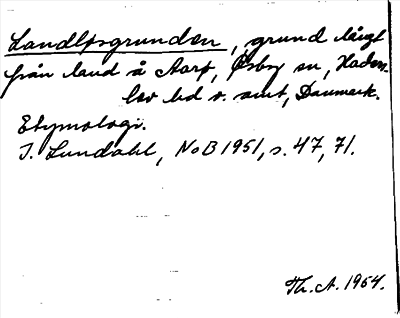 Landløsgrunden, grund långt
från land å Aarø, Øsby sn, Haders-
lev hd o. amt, Danmark.
Etymologi.
I. Lundahl, NoB 1951, s. 47, 71.
Th. A. 1964.